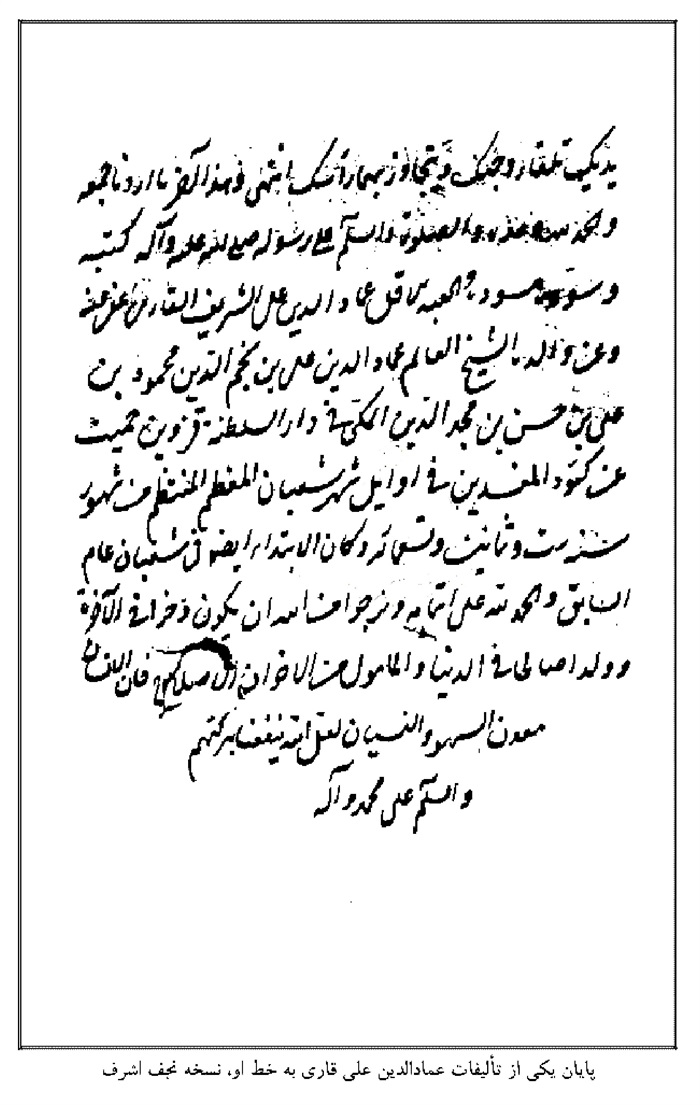 يديك تلقاء وجهك و تتجاوز بهما رأسك انتهى و هذا آخر ما اردنا جمعه
و الحمد لله وحده و الصلوة و السلم على رسوله صلى الله عليه و آله كتبه
و سوده العبد الاقل عماد الدين على الشريف القارى عفى عنه
و عن والديه الشيخ العالم عماد الدين على بن نجم الدين محمود بن
على بن حسن بن مجد الدين المكى فى دار السلطنة قزوين حميت
عن المفسدين فى اوايل شهر شعبان المعظم المنتظم من شهور
سنة ست و ثمانين و تسعمائة و كان الابتداء ايضا فى شعبان عام
السابق و الحمد لله على اتمامه و نرجو من الله ان يكون ذخرا فى الآخرة
و ولدا صالحا فى الدنيا و المأمول من الاخوان اصلاحه فان الانسان
معدن السهو و النسيان لعل الله ينفعنا ببركتهم
و السلم على محمد و آله
پایان یکی از تألیفات عمادالدین علی قاری به خط او، نسخه نجف اشرف